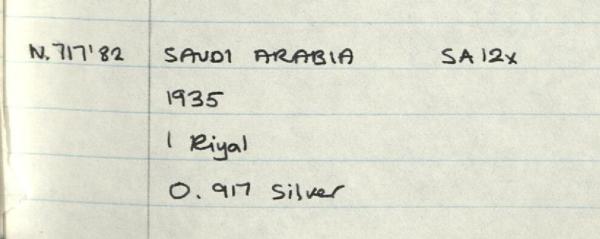 N.717'82 SAUDI ARABIA SA12x
1935
1 Riyal
0.917 Silver